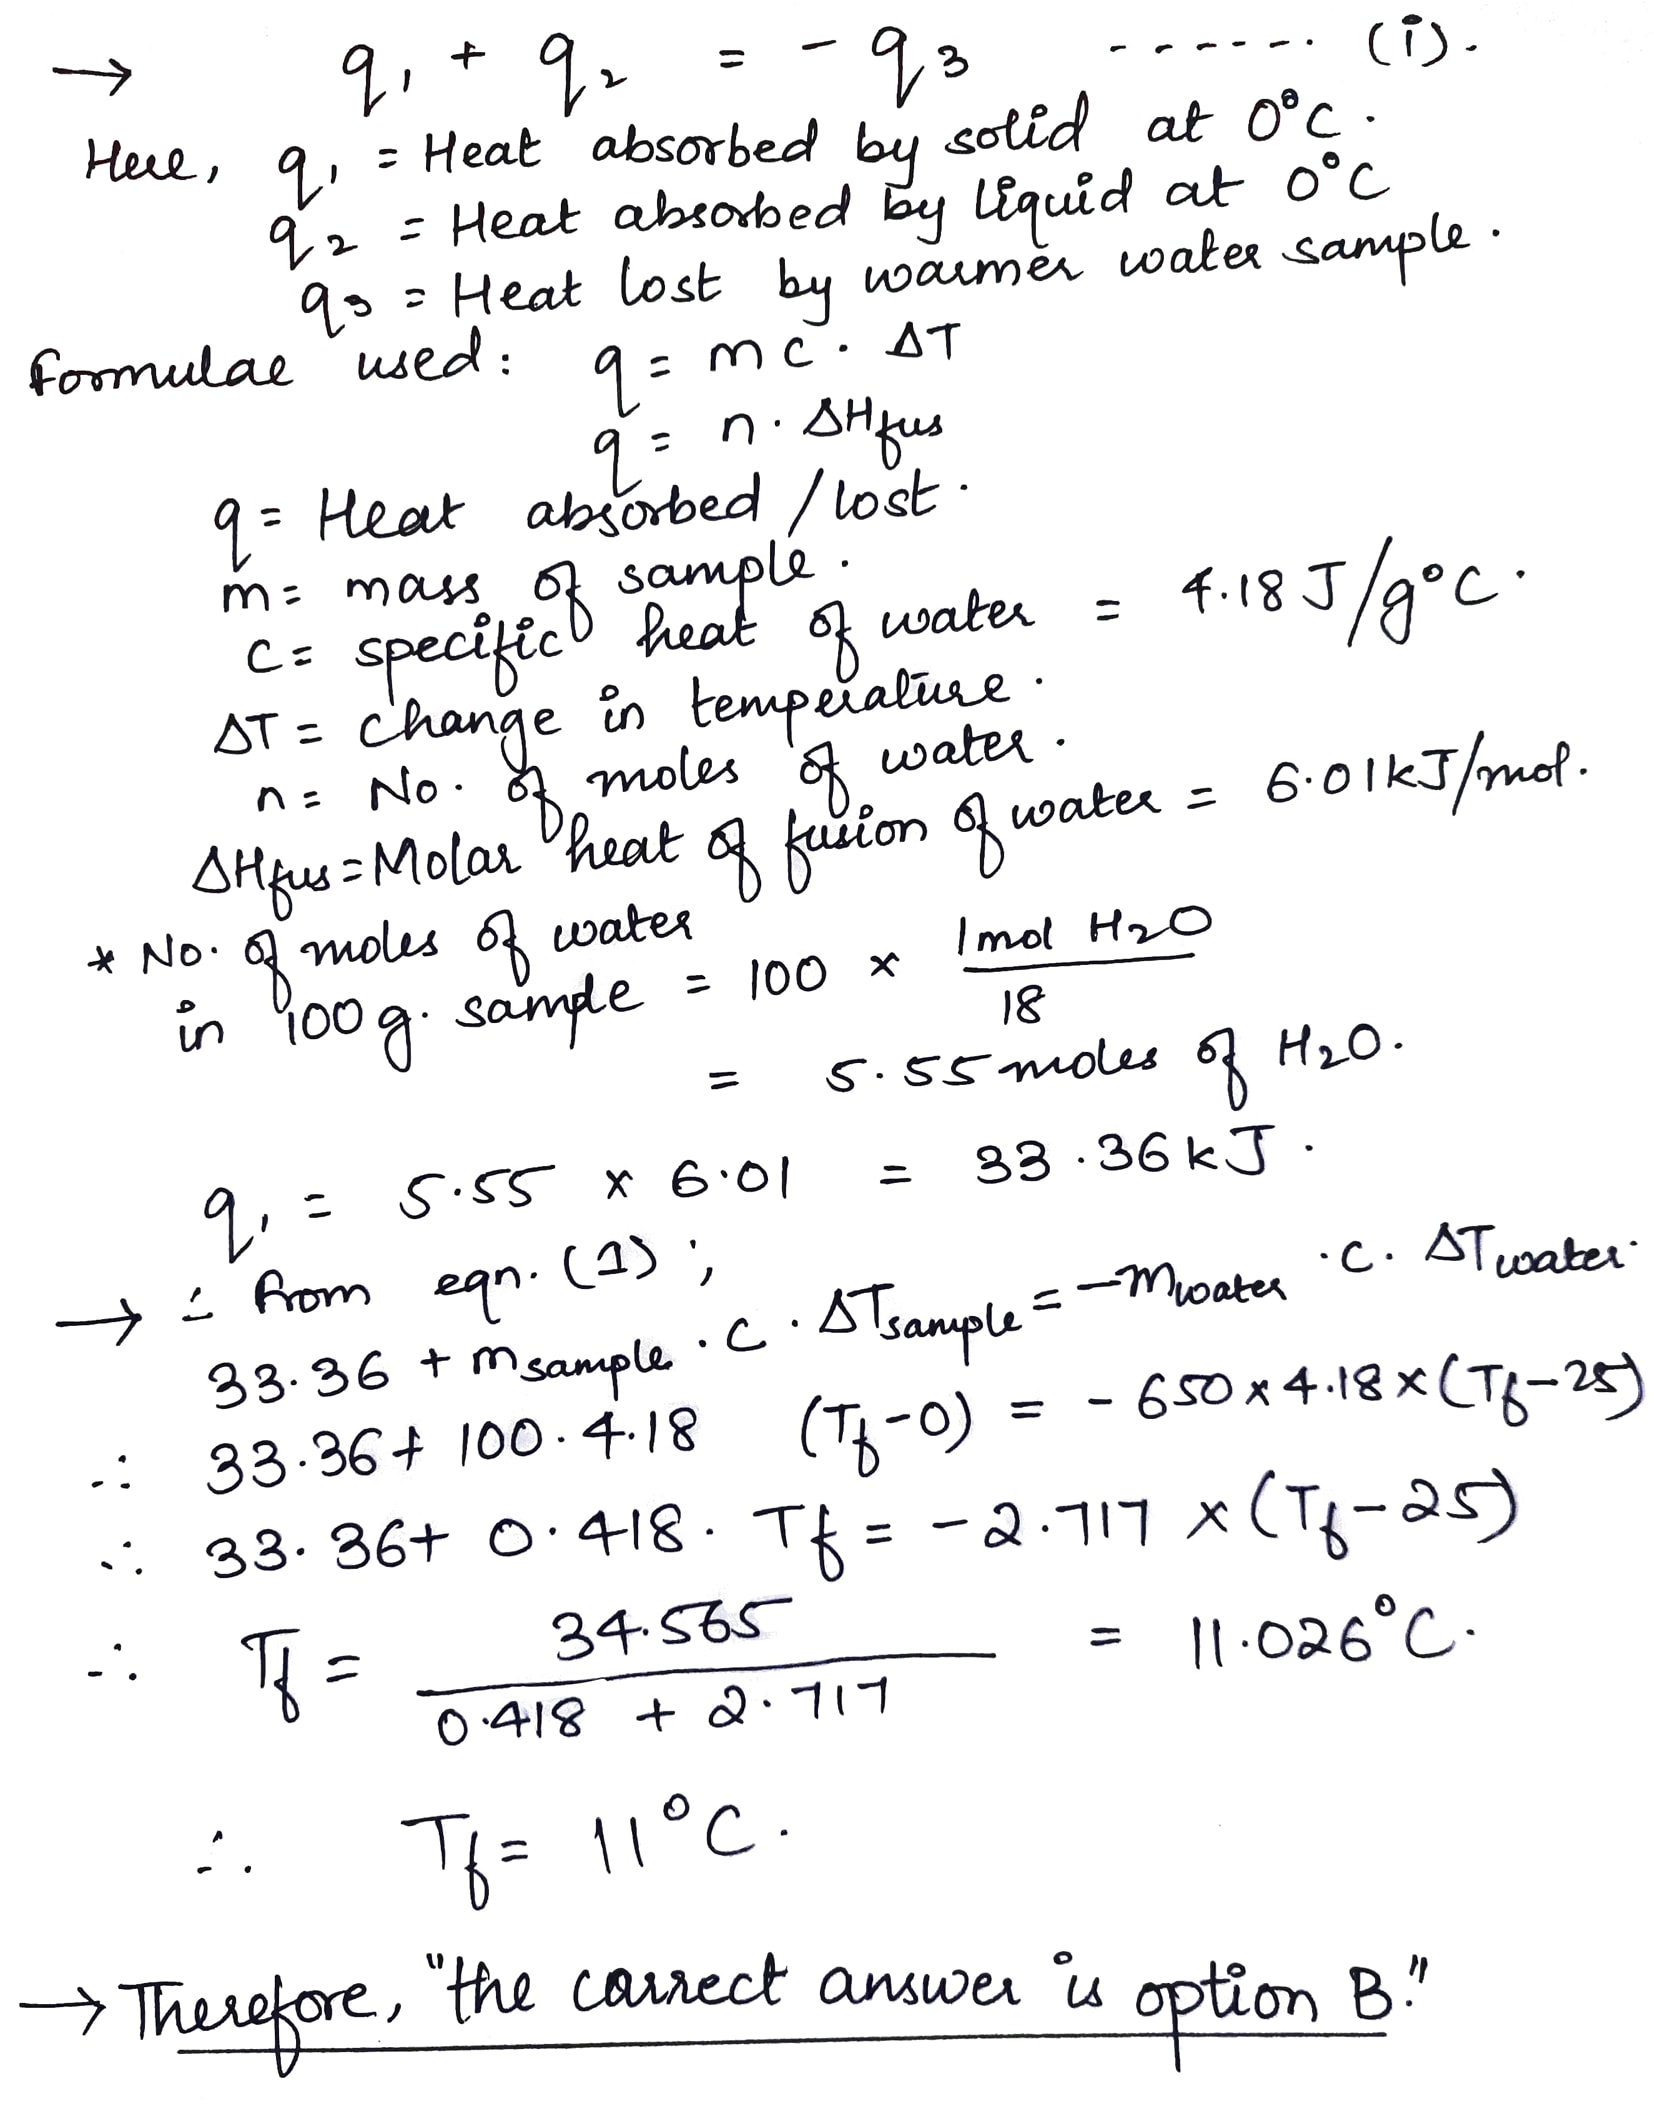 → q₁ + q₂ = - q₃ ------. (i).
Here, q₁ = Heat absorbed by solid at 0°C.
q₂ = Heat absorbed by liquid at 0°C
q₃ = Heat lost by warmer water sample.
Formulae used: q = mc. ΔT
q = n. ΔHfus
q = Heat absorbed / lost.
m = mass of sample.
C = specific heat of water = 4.18 J/g°C.
ΔT = change in temperature.
n = No. of moles of water.
ΔHfus = Molar heat of fusion of water = 6.01kJ/mol.
* No. of moles of water
in 100g. sample = 100 × 1mol H₂O / 18
= 5.55 moles of H₂O.
q₁ = 5.55 × 6.01 = 33.36 kJ.
→ ∴ from eqn. (1);
33.36 + msample . C . ΔTsample = -mwater .C. ΔTwater.
∴ 33.36 + 100. 4.18 (Tf-0) = - 650 × 4.18 × (Tf-25)
∴ 33.36 + 0.418. Tf = -2.717 × (Tf-25)
∴ Tf = 34.565 / 0.418 + 2.717 = 11.026°C.
∴ Tf = 11°C.
→ Therefore, "the correct answer is option B."